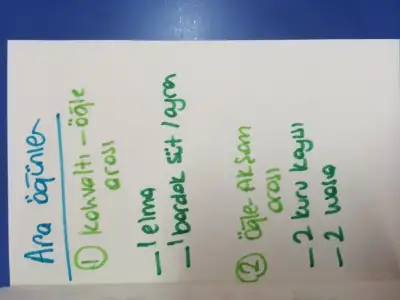 Ara öğünler
① Kahvaltı - öğle
arası
- 1 elma
- 1 bardak süt / ayran
② Öğle - Akşam
arası
- 2 kuru kayısı
- 2 wasa